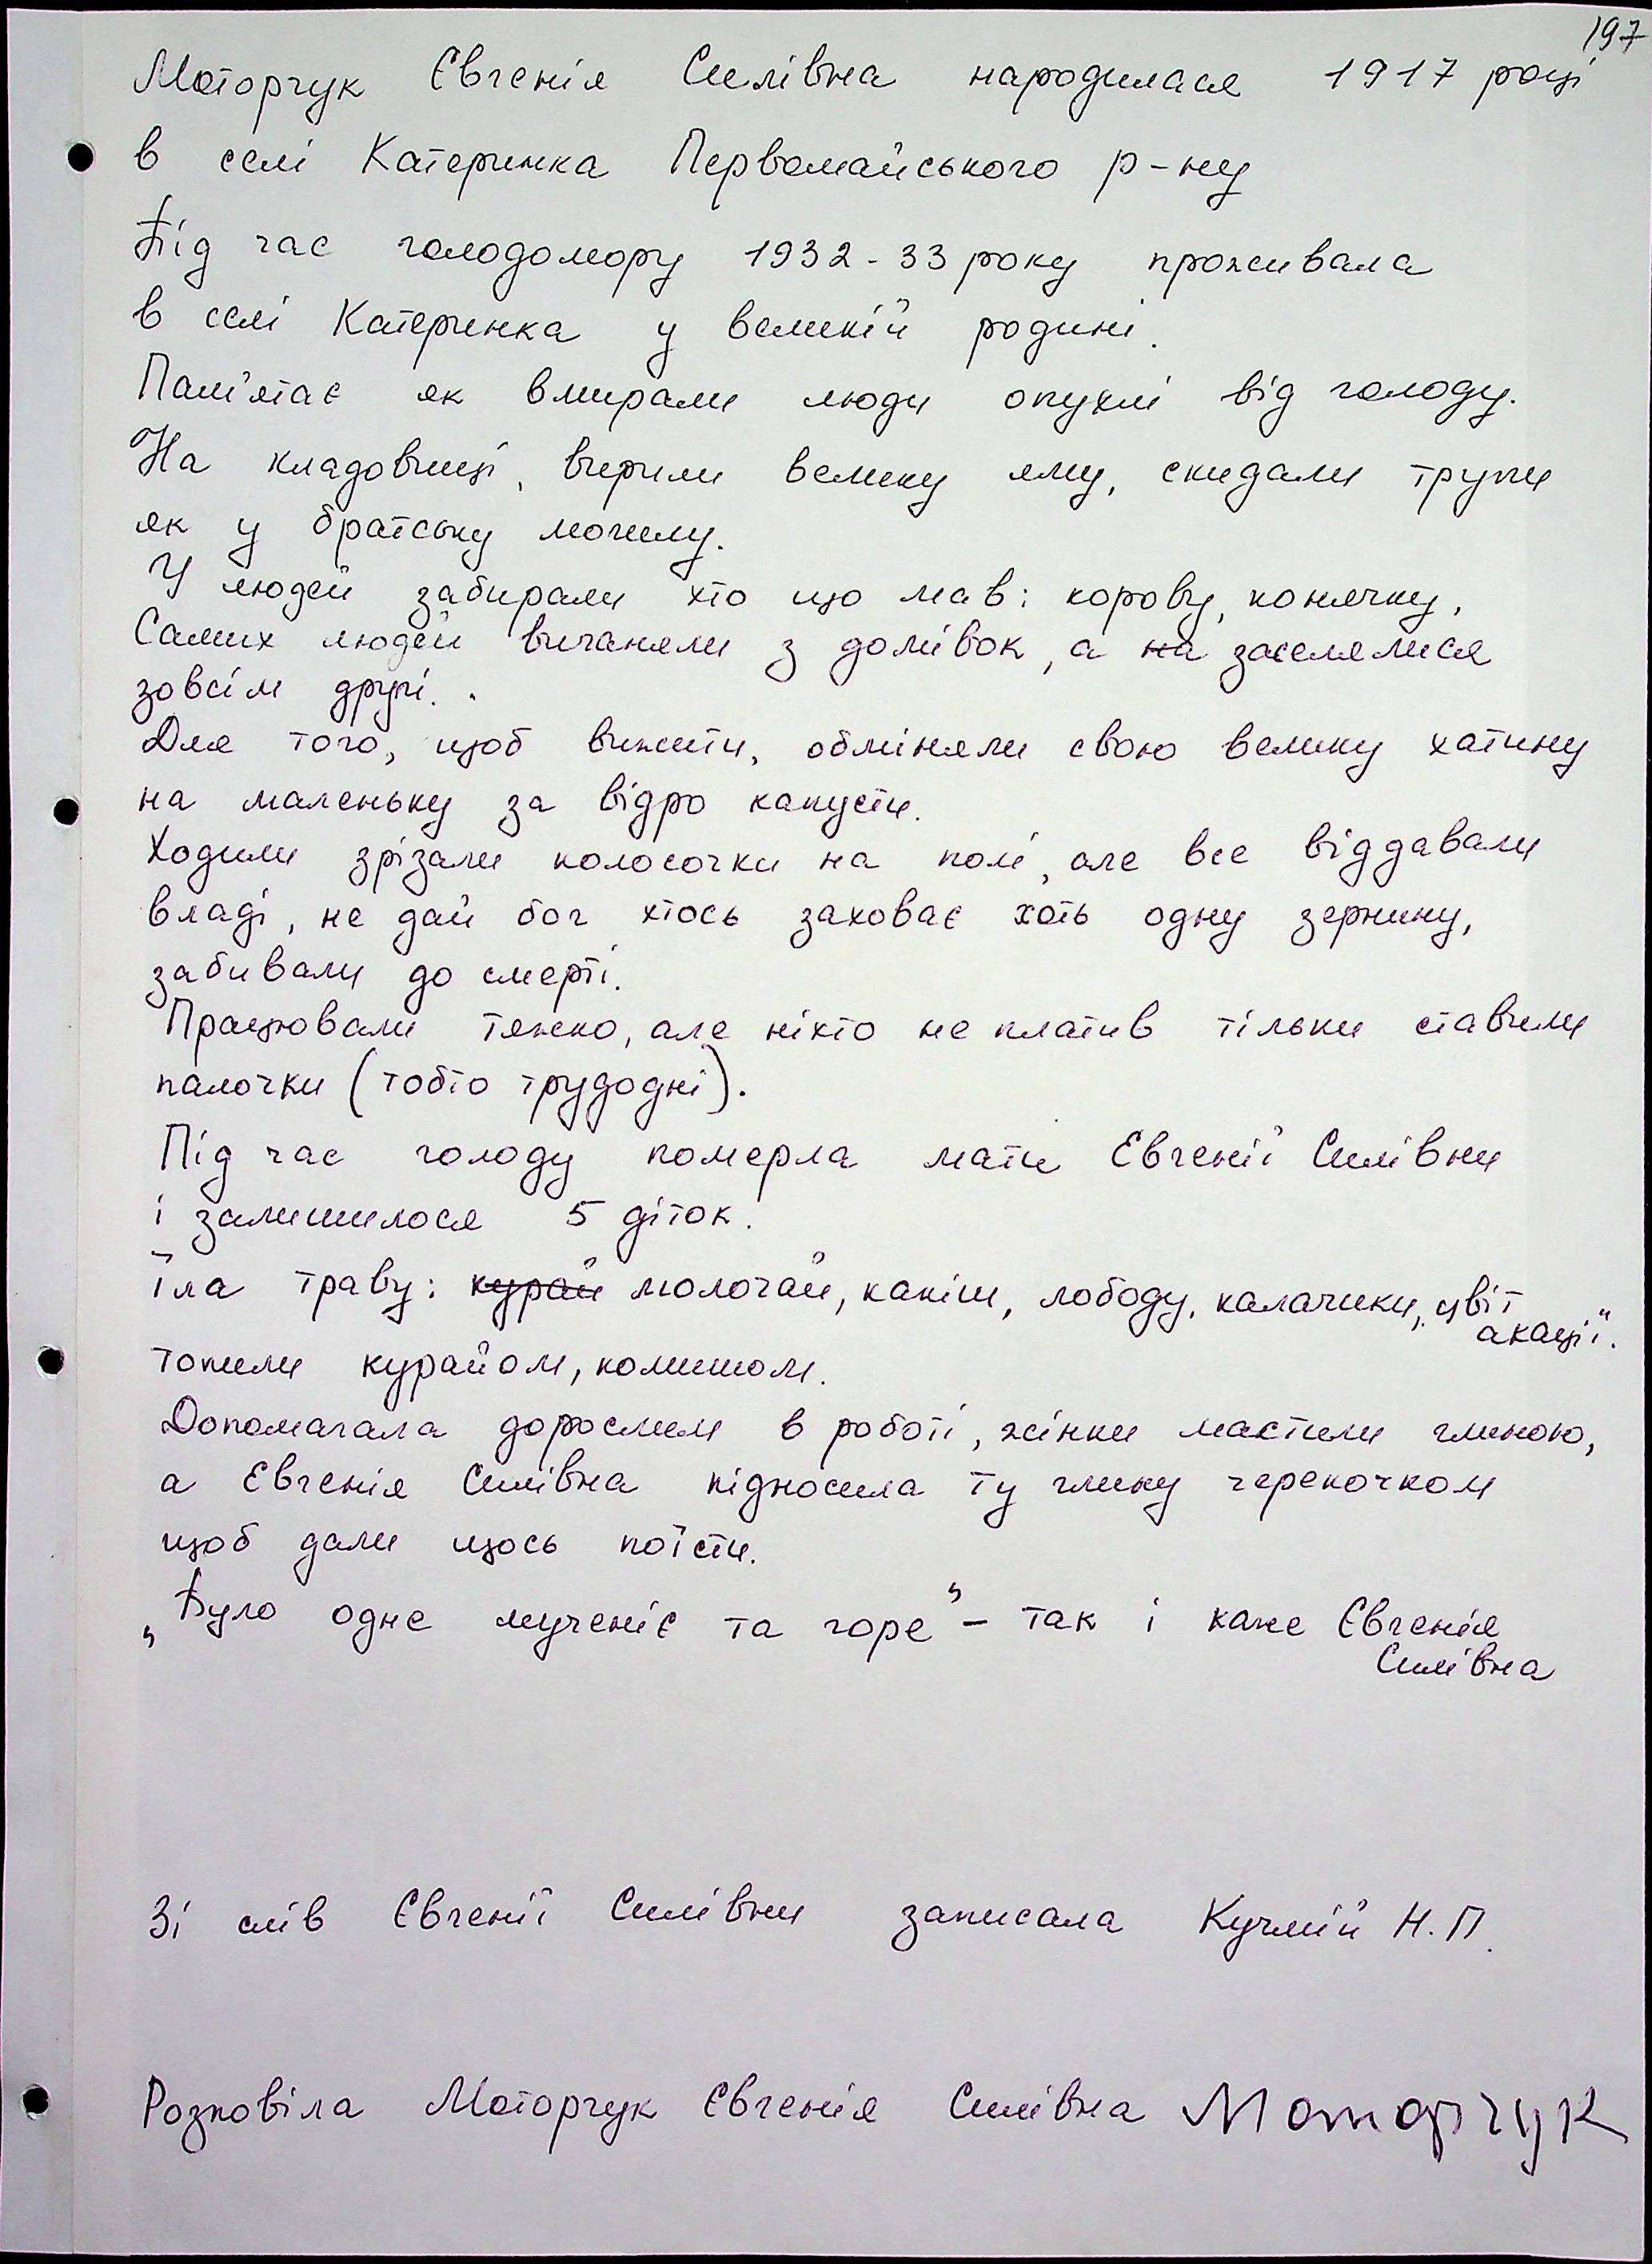 197
Моторчук Євгенія Силівна народилася 1917 році
в селі Катеринка Первомайського р-ну
Під час голодомору 1932-33 року проживала
в селі Катеринка у великій родині.
Пам'ятає як вмирали люди опухлі від голоду.
На кладовищі, вирили велику яму, скидали трупи
як у братську могилу.
У людей забирали хто що мав: корову, конячку,
Самих людей виганяли з домівок, а на заселялися
зовсім другі.
Для того, щоб вижити, обміняли свою велику хатину
на маленьку за відро капусти.
Ходили зрізали колосочки на полі, але все віддавали
владі, не дай бог хтось заховає хоть одну зернину,
забивали до смерті.
Працювали тяжко, але ніхто не платив тільки ставили
палочки (тобто трудодні).
Під час голоду померла мати Євгенії Силівни
і залишилося 5 діток.
Їла траву: курай молочай, какіш, лободу, калачики, цвіт
акації.
Топили курайом, комишом.
Допомагала дорослим в роботі, жінки мастили глиною,
а Євгенія Силівна підносила ту глину черепочком
щоб дали щось поїсти.
„Було одне мученіє та горе" - так і каже Євгенія
Силівна
Зі слів Євгенії Силівни записала Кучмій Н.П.
Розповіла Моторчук Євгенія Силівна Моторчук